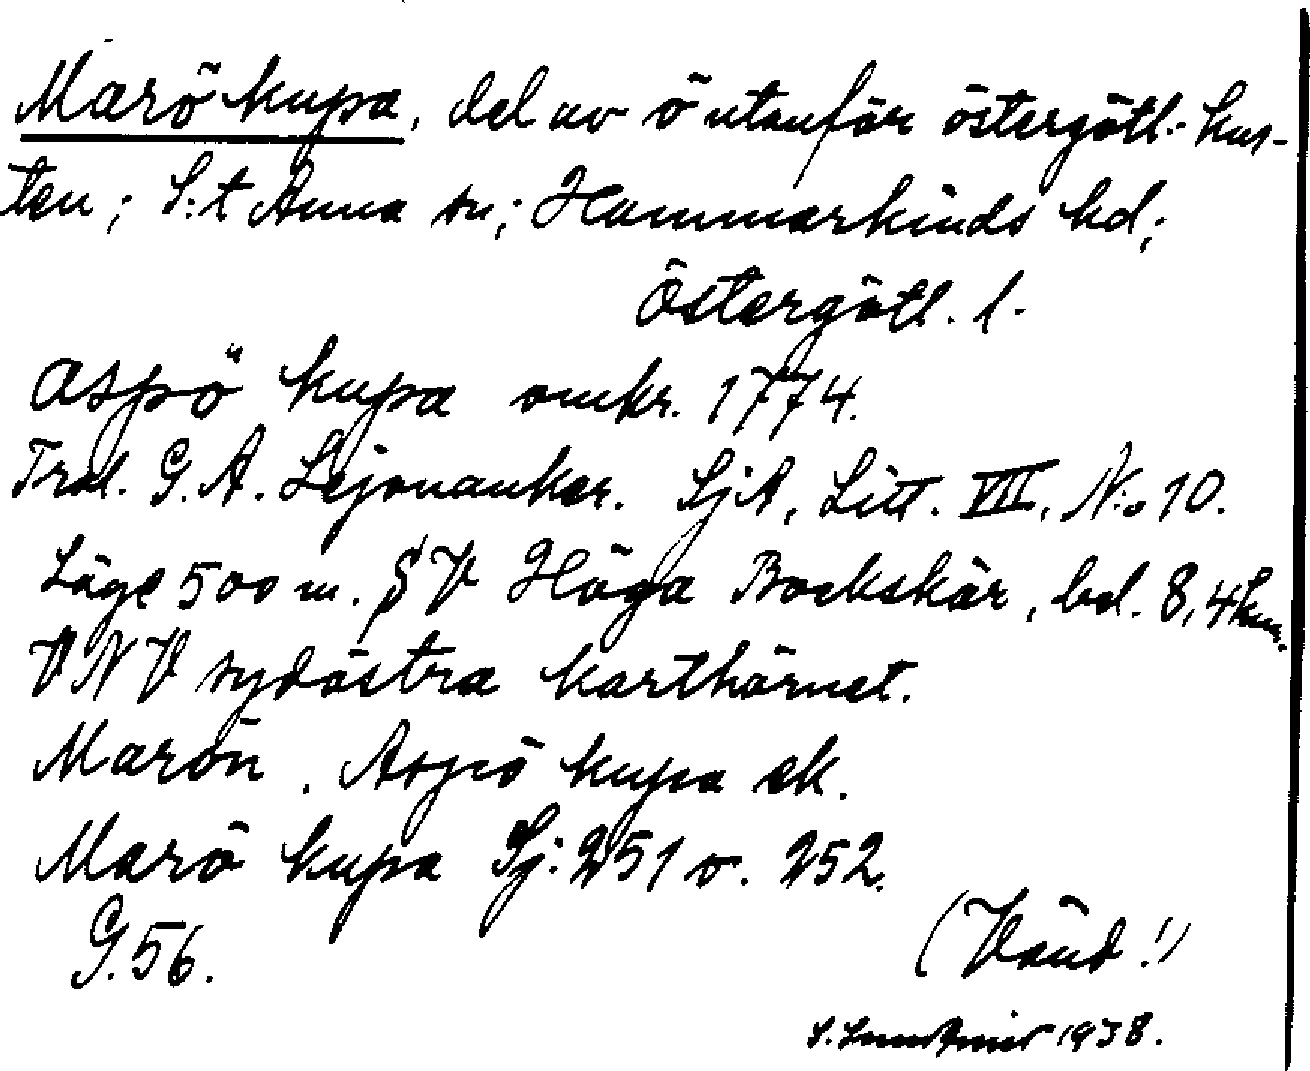 Marö kupa, del av ö utanför östergötl. kus-
ten; S:t Anna sn; Hammarkinds hd;
Östergötl. l.
Aspö kupa omkr. 1774.
Trol. G. A. Lejonanker. SjA, Litt. VII, N:o 10.
Läge 500 m. SV Höga Bockskär, bel. 8,4 km.
VNV sydöstra karthörnet.
Marön. Aspö kupa ek.
Marö kupa Sj: 251 o. 252.
G. 56.
(Vänd!)
S. 1938.